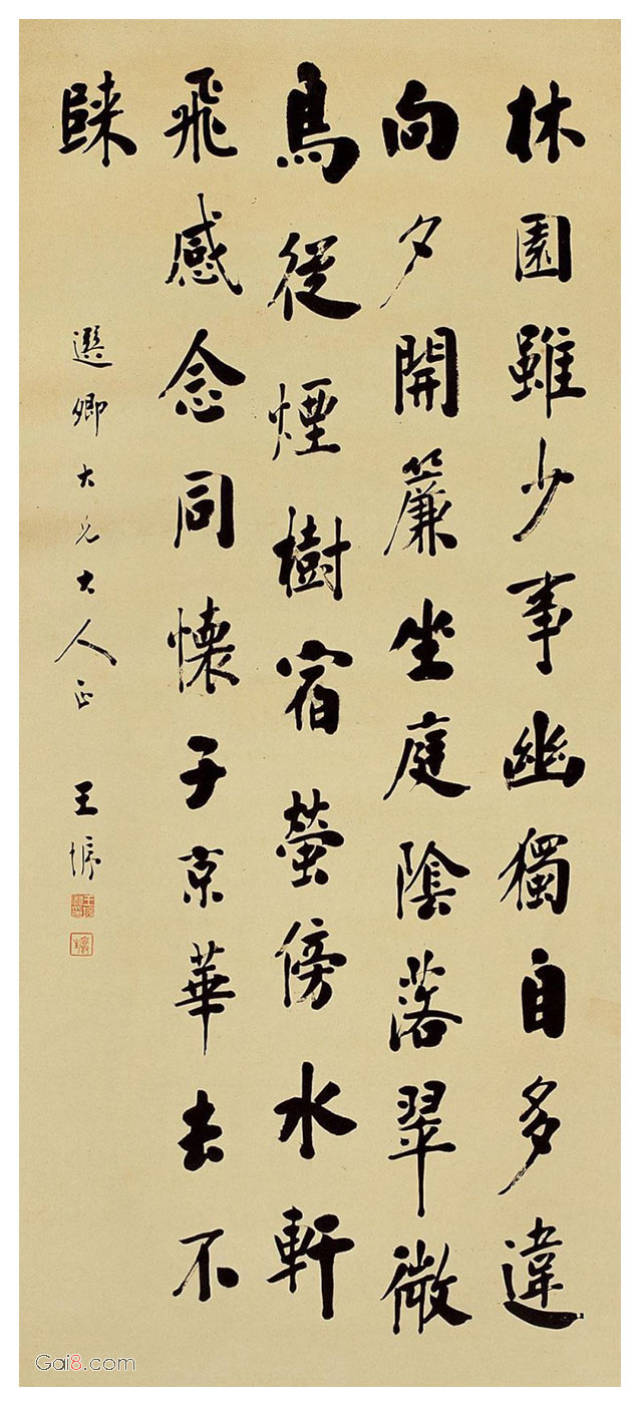 林園雖少事幽獨自多違
向夕開簾坐庭陰落翠微
鳥從煙樹宿螢傍水軒
飛感念同懷子京華去不
歸
選卿大兄大人正 王垿
Gai8.com